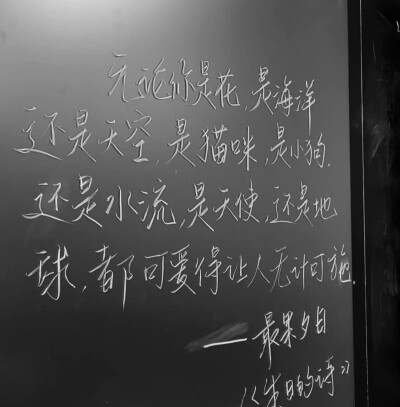 无论你是花，是海洋
还是天空，是猫咪，是小狗，
还是水流，是天使，还是地
球，都可爱得让人无计可施。
——最果夕日
《朱日的诗》